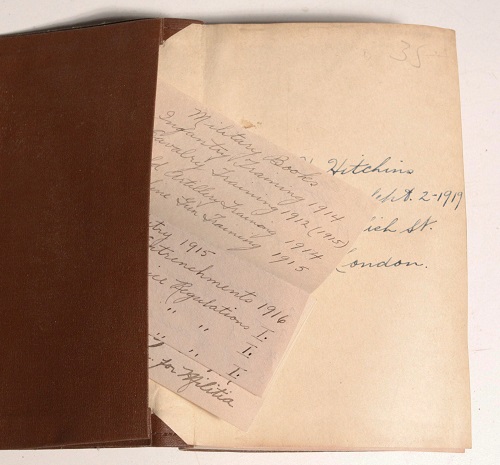 35-
Military Books
Infantry Training 1914
Cavalry Training 1912 (1915)
Artillery Training 1914
Gun Training 1915
1915
Entrenchments 1916
Regulations I.
" " I.
" " I.
for Militia
Hitchins
Sept. 2-1919
St.
London.